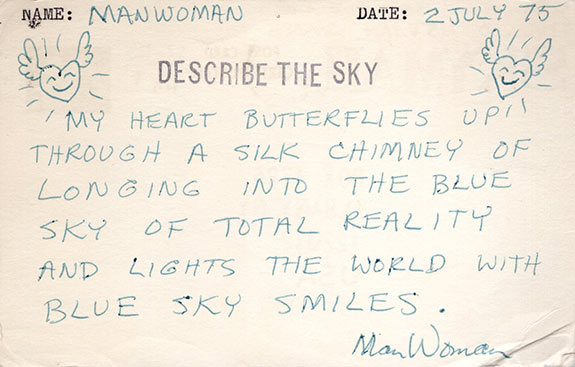 NAME: MANWOMAN DATE: 2 JULY 75
DESCRIBE THE SKY
"MY HEART BUTTERFLIES UP"
THROUGH A SILK CHIMNEY OF
LONGING INTO THE BLUE
SKY OF TOTAL REALITY
AND LIGHTS THE WORLD WITH
BLUE SKY SMILES.
ManWoman